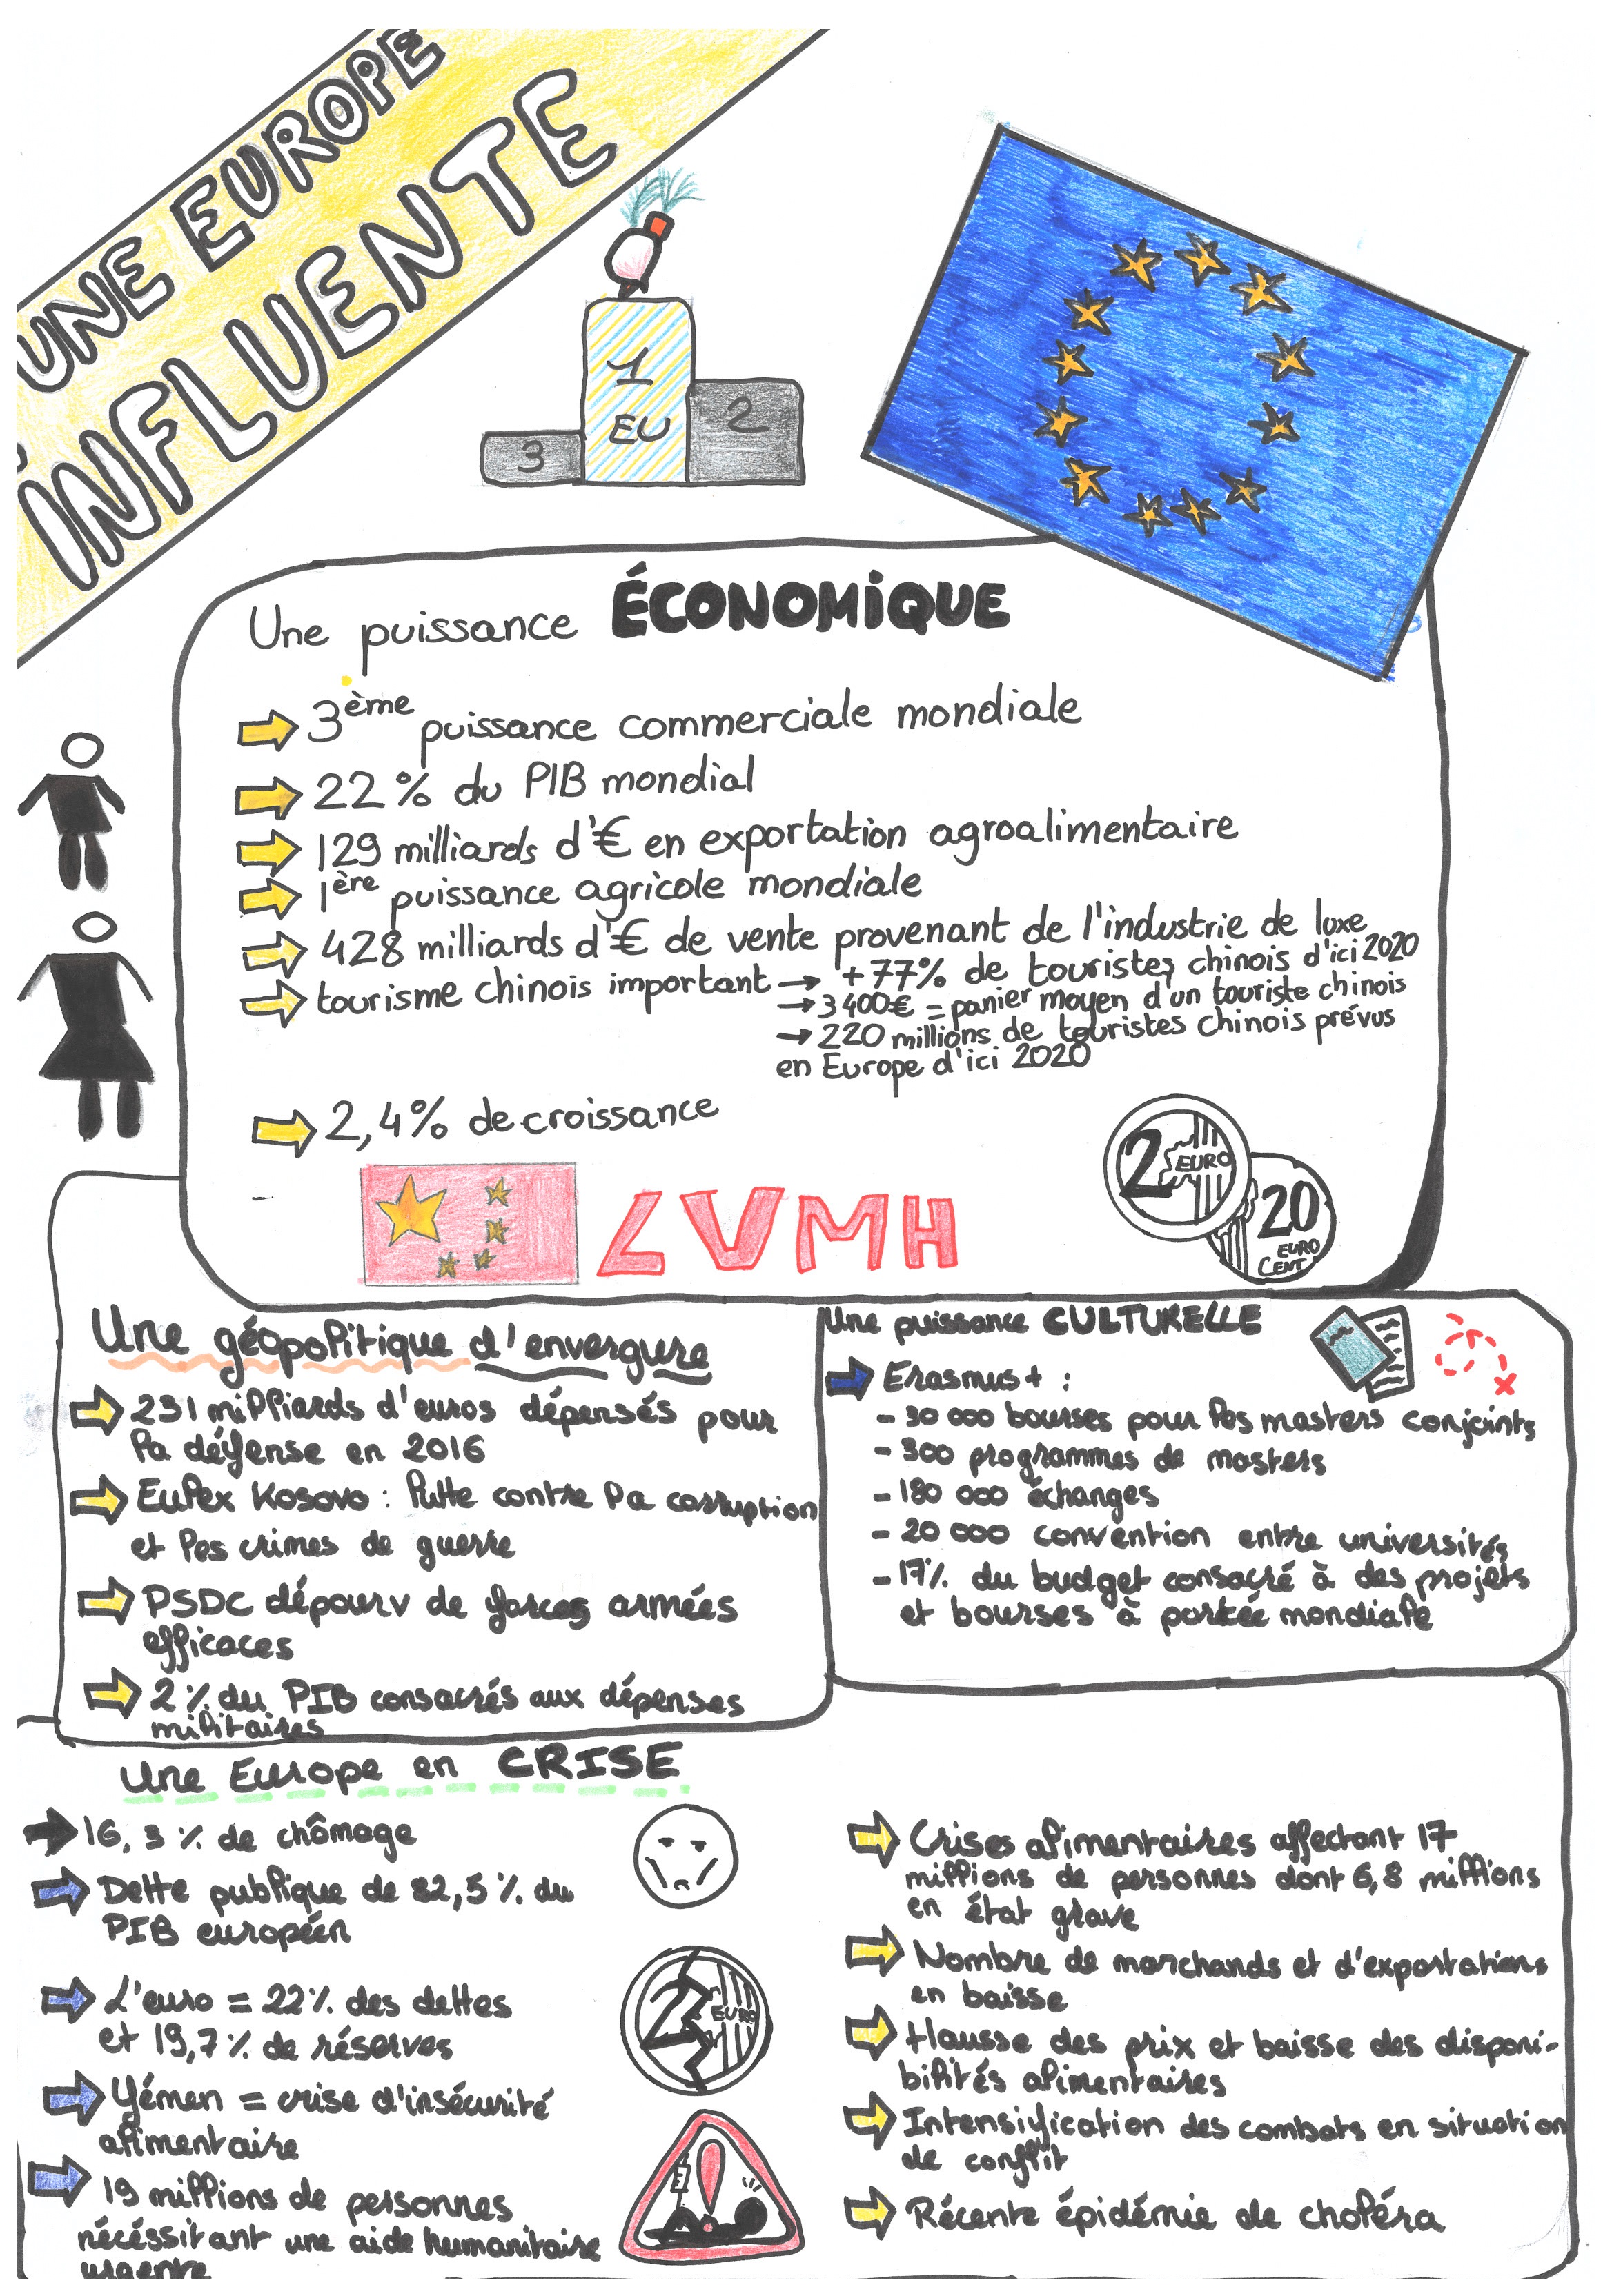 UNE EUROPE
INFLUENTE
1
EU
2
3
Une puissance ÉCONOMIQUE
3ème puissance commerciale mondiale
22% du PIB mondial
129 milliards d'€ en exportation agroalimentaire
1ère puissance agricole mondiale
428 milliards d'€ de vente provenant de l'industrie de luxe
tourisme chinois important → +77% de touristes chinois d'ici 2020
→ 3400€ = panier moyen d'un touriste chinois
→ 220 millions de touristes chinois prévus
en Europe d'ici 2020
2,4% de croissance
LVMH
2 EURO
20
EURO
CENT
Une géopolitique d'envergure
231 milliards d'euros dépensés pour
la défense en 2016
Eulex Kosovo : lutte contre la corruption
et les crimes de guerre
PSDC dépourv de forces armées
efficaces
2% du PIB consacrés aux dépenses
militaires
Une puissance CULTURELLE
Erasmus+ :
- 30 000 bourses pour les masters conjoints
- 300 programmes de masters
- 180 000 échanges
- 20 000 convention entre universités
- 17% du budget consacré à des projets
et bourses à portée mondiale
Une Europe en CRISE
16,3% de chômage
Dette publique de 82,5% du
PIB européen
L'euro = 22% des dettes
et 19,7% de réserves
Yémen = crise d'insécurité
alimentaire
19 millions de personnes
nécéssitant une aide humanitaire
urgente
2 EURO
Crises alimentaires affectant 17
millions de personnes dont 6,8 millions
en état grave
Nombre de marchands et d'exportations
en baisse
Hausse des prix et baisse des disponi-
bilités alimentaires
Intensification des combats en situation
de conflit
Récente épidémie de choléra